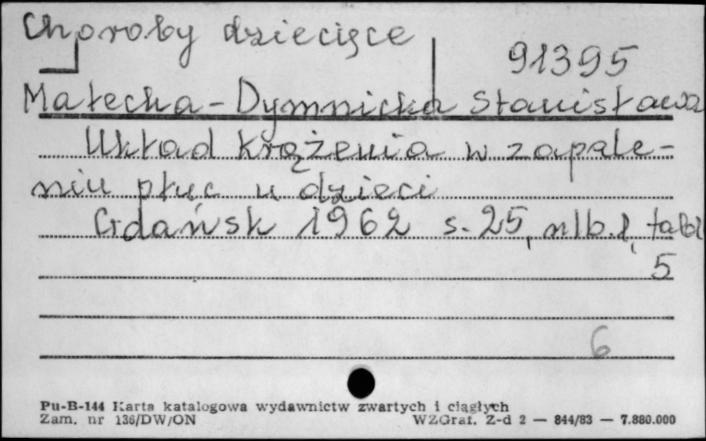 Choroby dziecięce
91395
Małecka-Dymnicka Stanisława
Układ krążenia w zapale-
niu płuc u dzieci
Gdańsk 1962 s. 25, nlb. 1, tabl
5
6
Pu-B-144 Karta katalogowa wydawnictw zwartych i ciągłych
Zam. nr 136/DW/ON WZGraf. Z-d 2 — 844/83 — 7.880.000